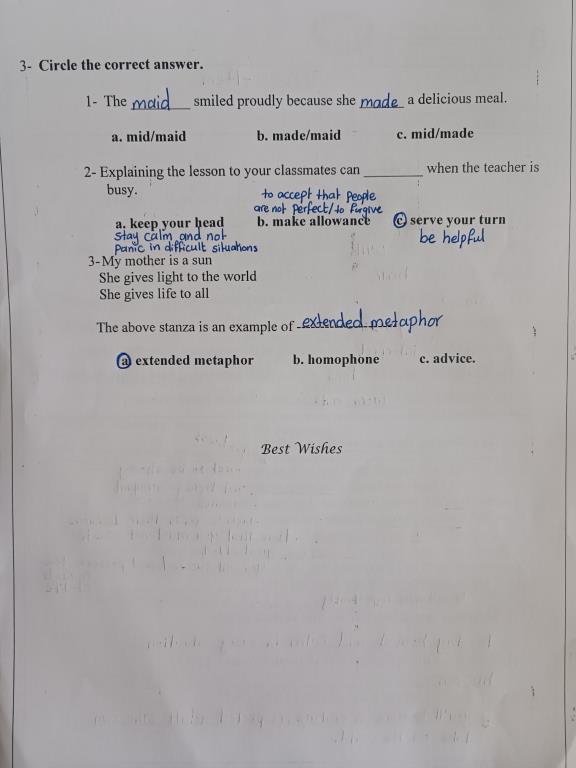 3- Circle the correct answer.
1- The maid smiled proudly because she made a delicious meal.
a. mid/maid b. made/maid c. mid/made
2- Explaining the lesson to your classmates can ________ when the teacher is
busy.
to accept that People
are not perfect/to forgive
a. keep your head b. make allowance c serve your turn
stay calm and not
panic in difficult situations
be helpful
3-My mother is a sun
She gives light to the world
She gives life to all
The above stanza is an example of extended metaphor
a extended metaphor b. homophone c. advice.
Best Wishes